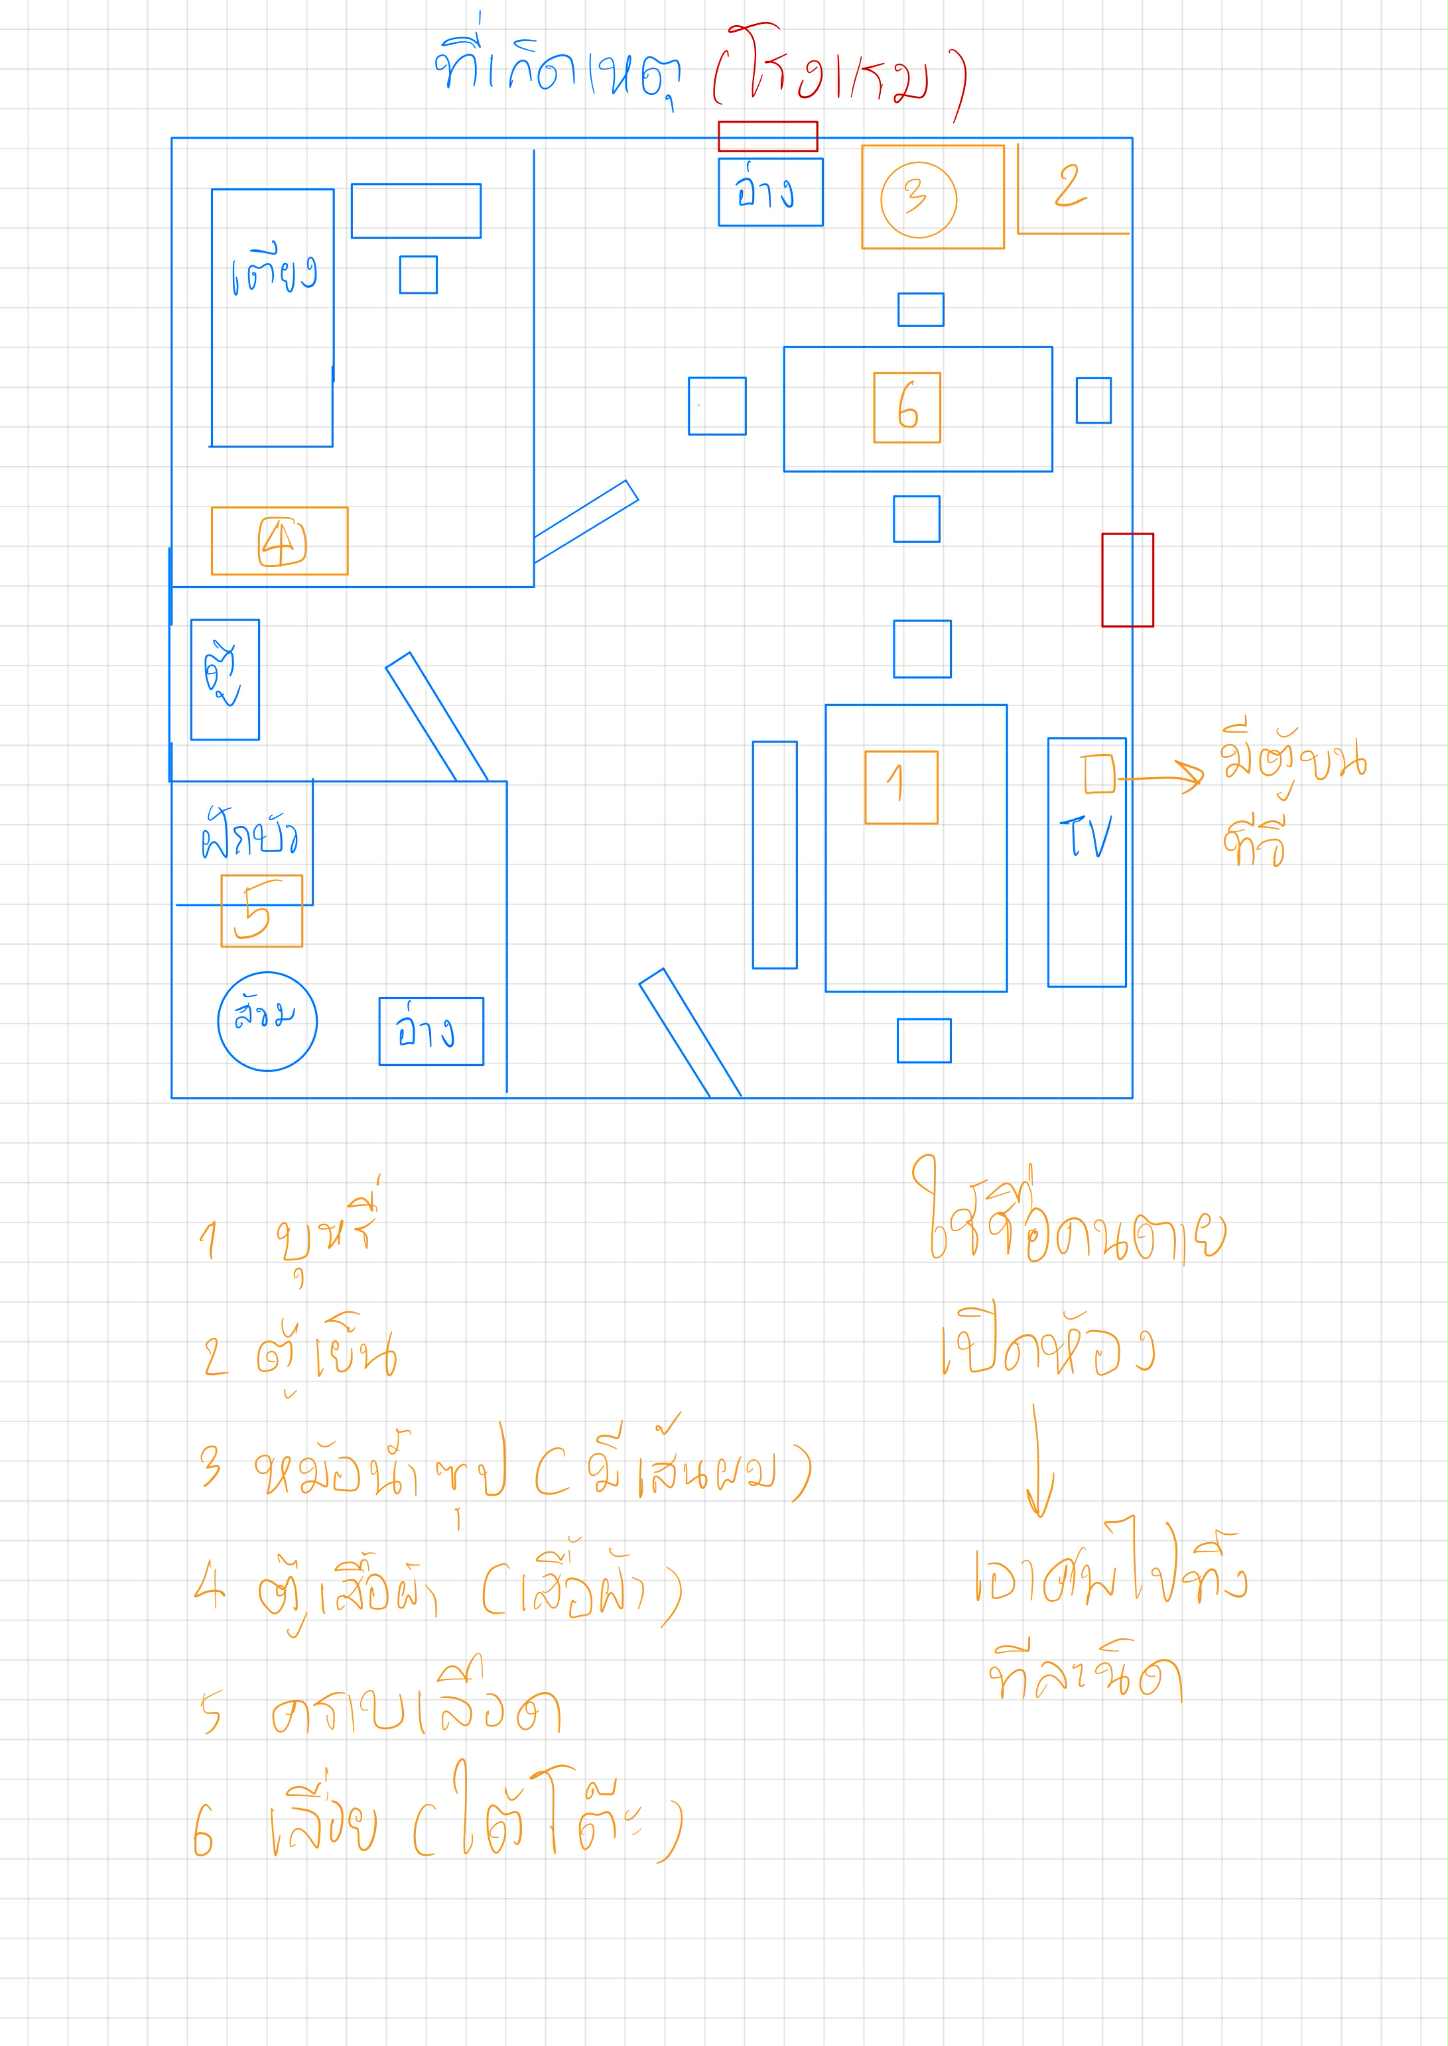 ที่เกิดเหตุ (โรงแรม)
อ่าง
3
2
เตียง
6
4
ตู้
1
มีตู้บน
ทีวี
TV
ฝักบัว
5
ส้วม
อ่าง
1 บุหรี่
2 ตู้เย็น
3 หม้อน้ำซุป (มีเส้นผม)
4 ตู้เสื้อผ้า (เสื้อผ้า)
5 คราบเลือด
6 เลื่อย (ใต้โต๊ะ)
ใช้ชื่อคนตาย
เปิดห้อง
เอาศพไปทิ้ง
ทีละนิด